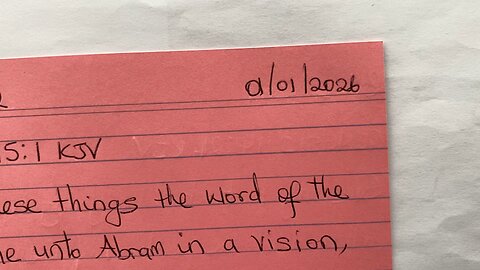 01/01/2026
15:1 KJV
ese things the word of the
e unto Abram in a vision,